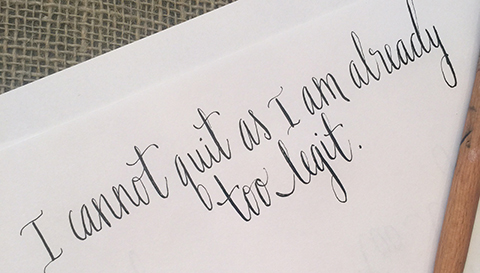 I cannot quit as I am already
too legit.